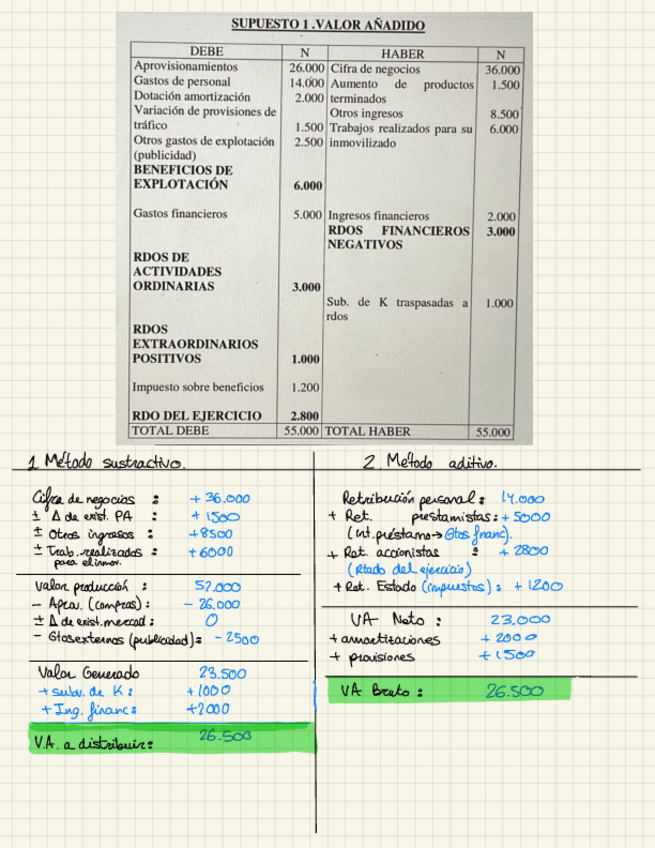 SUPUESTO 1 .VALOR AÑADIDO
DEBE N HABER N
Aprovisionamientos 26.000 Cifra de negocios 36.000
Gastos de personal 14.000 Aumento de productos 1.500
Dotación amortización 2.000 terminados
Variación de provisiones de Otros ingresos 8.500
tráfico 1.500 Trabajos realizados para su 6.000
Otros gastos de explotación 2.500 inmovilizado
(publicidad)
BENEFICIOS DE
EXPLOTACIÓN 6.000
Gastos financieros 5.000 Ingresos financieros 2.000
RDOS FINANCIEROS 3.000
NEGATIVOS
RDOS DE
ACTIVIDADES
ORDINARIAS 3.000
Sub. de K traspasadas a 1.000
rdos
RDOS
EXTRAORDINARIOS
POSITIVOS 1.000
Impuesto sobre beneficios 1.200
RDO DEL EJERCICIO 2.800
TOTAL DEBE 55.000 TOTAL HABER 55.000
1. Método sustractivo.
Cifra de negocios : + 36.000
± Δ de exist. PA : + 1500
± Otros ingresos : +8500
± Trab. realizados : +6000
para el inmov.
Valor producción : 52.000
- Aprov. (compras) : - 26.000
± Δ de exist. mercad : 0
- Gtos externos (publicidad): - 2500
Valor Generado 23.500
+ subv. de K : +1000
+ Ing. financ : +2000
V.A. a distribuir: 26.500
2. Método aditivo.
Retribución personal : 14.000
+ Ret. prestamistas: + 5000
(Int. préstamo → Gtos franc).
+ Ret. accionistas : + 2800
(Rtado del ejercicio)
+ Ret. Estado (impuestos) : + 1200
VA Neto : 23.000
+ amortizaciones + 2000
+ provisiones + 1500
VA Bruto : 26.500